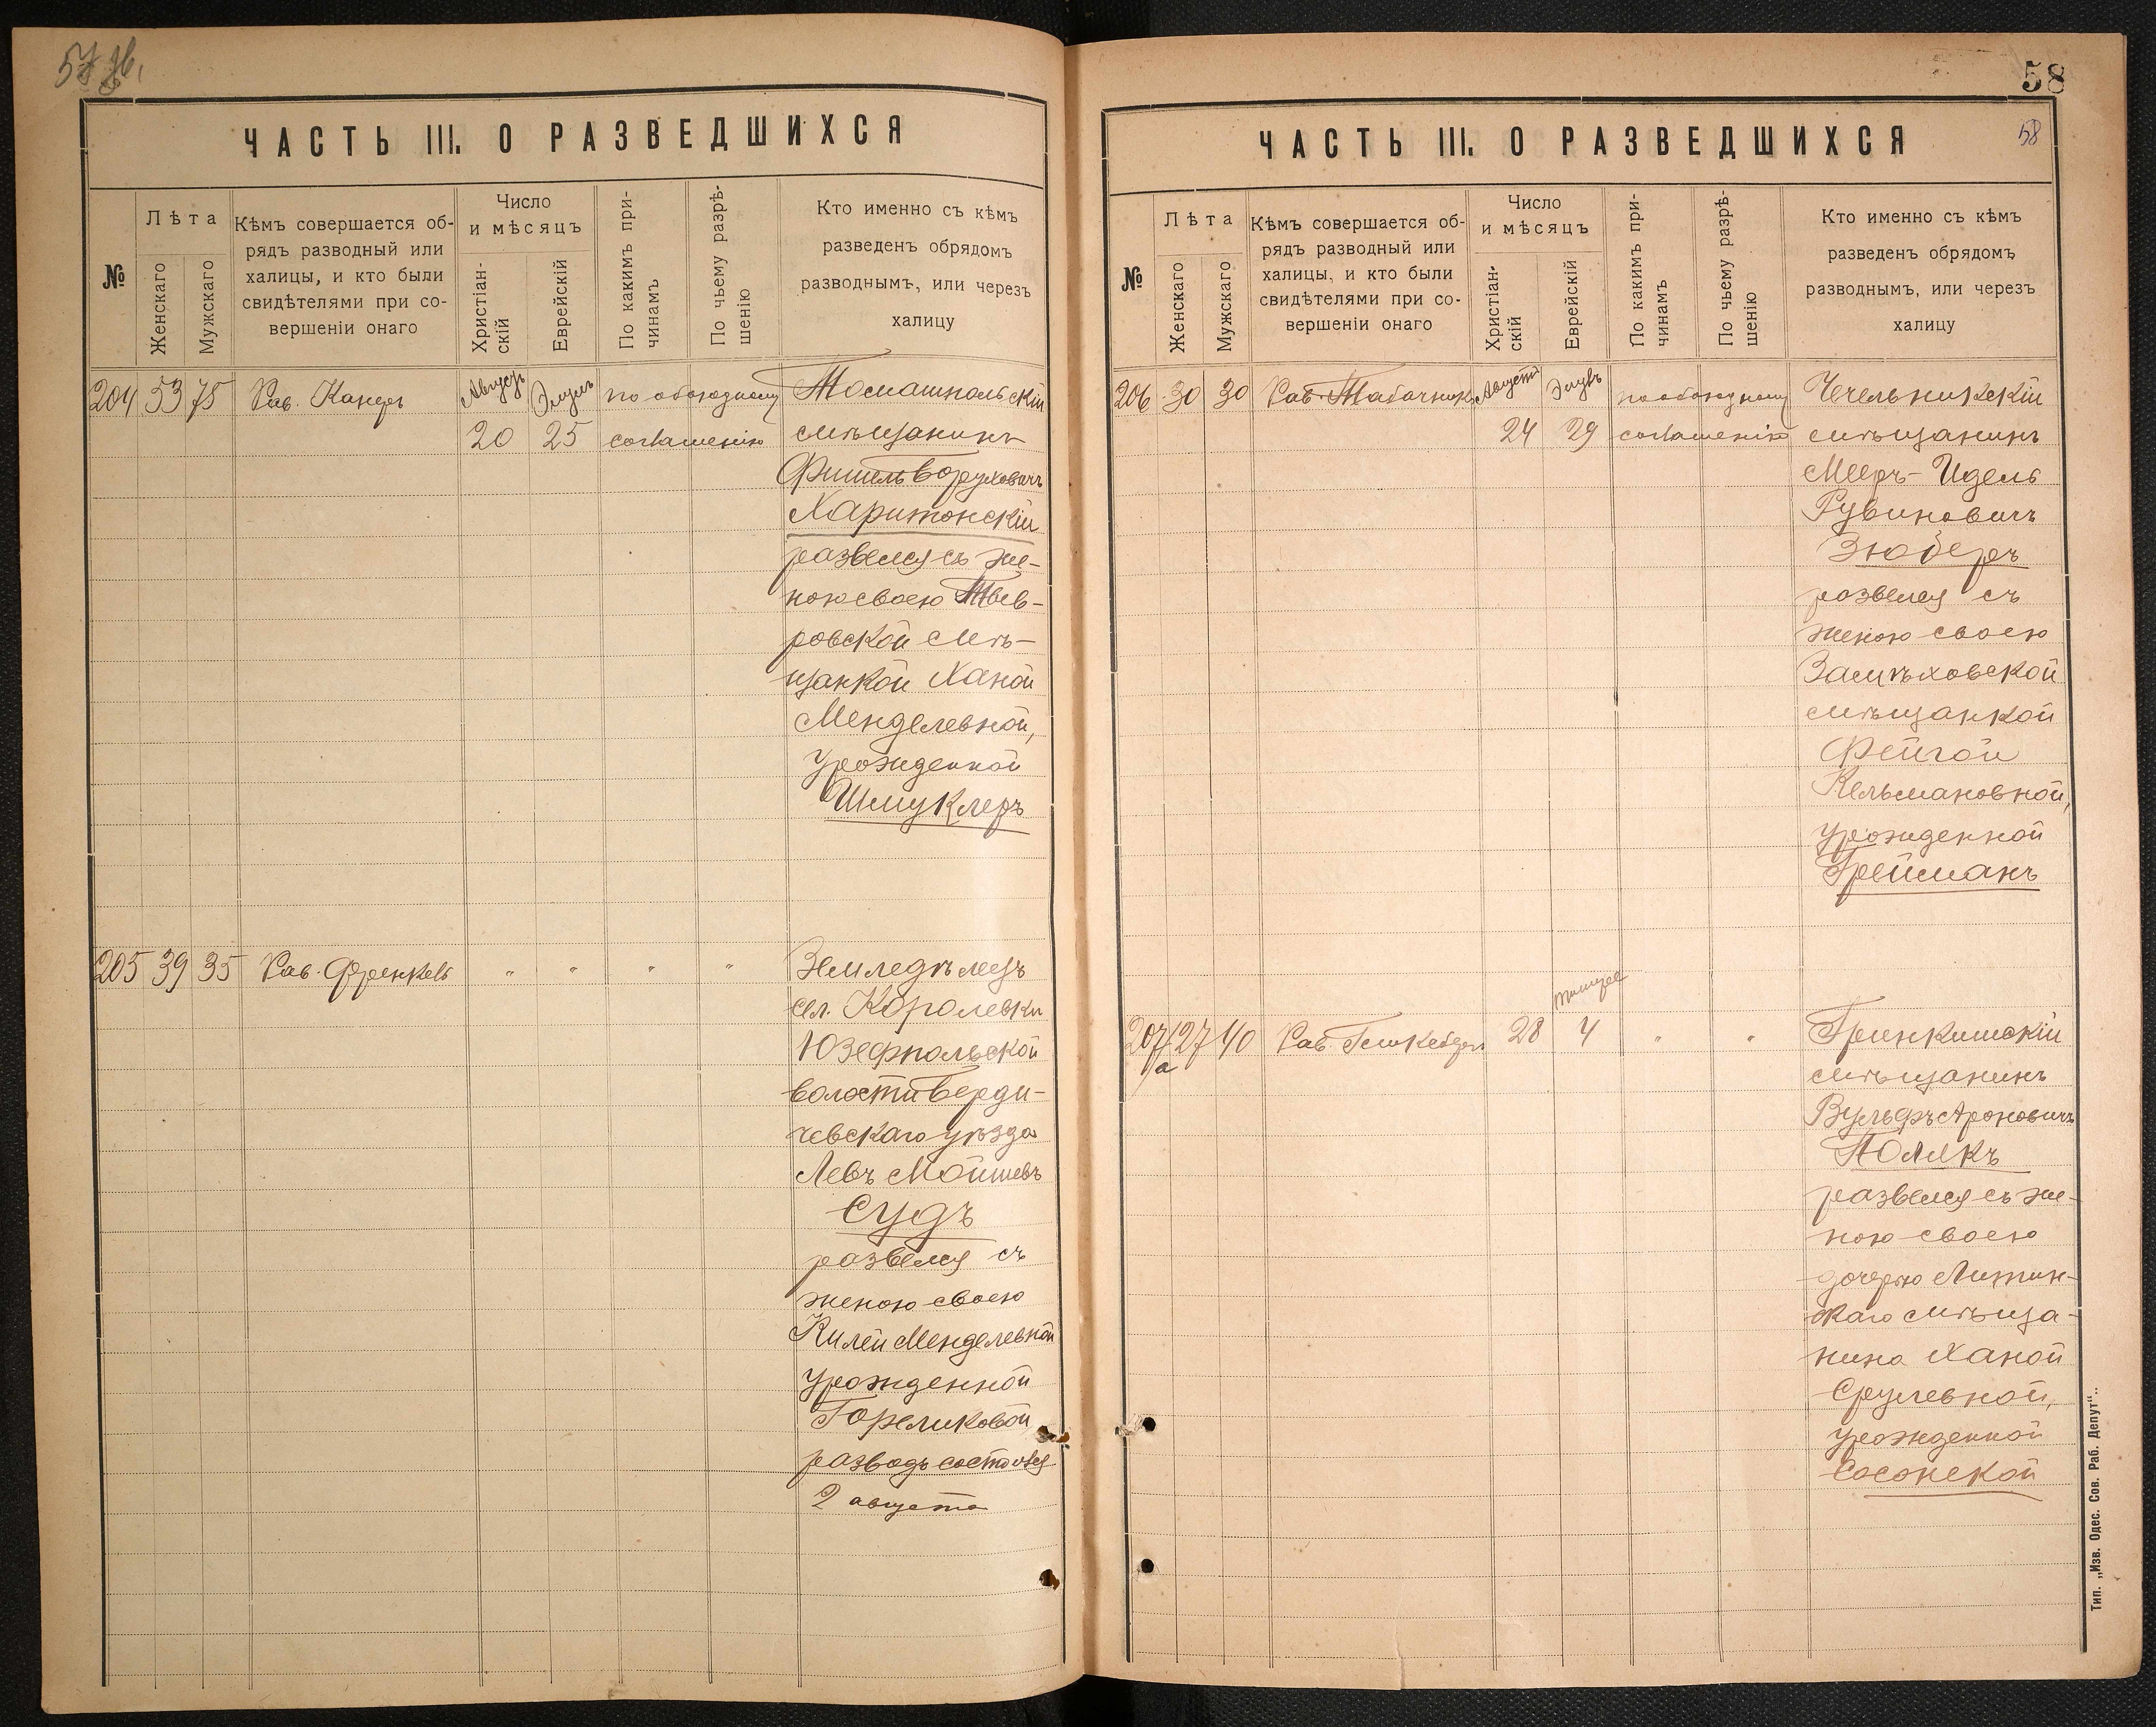 58
ЧАСТЬ III. О РАЗВЕДШИХСЯ
№
Лѣта
Женскаго
Мужскаго
Кѣмъ совершается об-
рядъ разводный или
халицы, и кто были
свидѣтелями при со-
вершеніи онаго
Число
и мѣсяцъ
Христіан-
скій
Еврейскій
По какимъ при-
чинамъ
По чьему разрѣ-
шенію
Кто именно съ кѣмъ
разведенъ обрядомъ
разводнымъ, или черезъ
халицу
204 53 75 Рав. Канеръ Августъ Элулъ по обоюдному Томашпольскій
20 25 соглашенію мѣщанинъ
Фишель Боруховичъ
Харитонскій
развелся съ же-
ною своею
ровской мѣ-
щанкой Ханой
Менделевной,
урожденной
Шмуклеръ
205 39 35 Рав. Френкель " " " " Земледѣлецъ
сел. Королевки
Юзефпольской
волости Берди-
чевскаго уѣзда
Левъ Мойшевъ
Судъ
развелся съ
женою своею
Килей Менделевной
урожденной
Гореликовой
разводъ состоялся
2 августа
ЧАСТЬ III. О РАЗВЕДШИХСЯ
58
№
Лѣта
Женскаго
Мужскаго
Кѣмъ совершается об-
рядъ разводный или
халицы, и кто были
свидѣтелями при со-
вершеніи онаго
Число
и мѣсяцъ
Христіан-
скій
Еврейскій
По какимъ при-
чинамъ
По чьему разрѣ-
шенію
Кто именно съ кѣмъ
разведенъ обрядомъ
разводнымъ, или черезъ
халицу
206 30 30 Рав. Табачникъ Августъ Элулъ по обоюдному Чечельникскій
24 29 соглашенію мѣщанинъ
Мееръ-Идель
Рувиновичъ
Зюберъ
развелся съ
женою своею
Замѣховской
мѣщанкой
Фейгой
Кельмановной,
урожденной
Грейманъ
207 27 40 Рав. 28 4 " " Гринкишскій
а
мѣщанинъ
Вульфъ Ароновичъ
Полякъ
развелся съ же-
ною своею
дочерью Литин-
скаго мѣща-
нина Ханой
Срулевной,
урожденной
Сосонской
Тип. „Изв. Одес. Сов. Раб. Депут“..